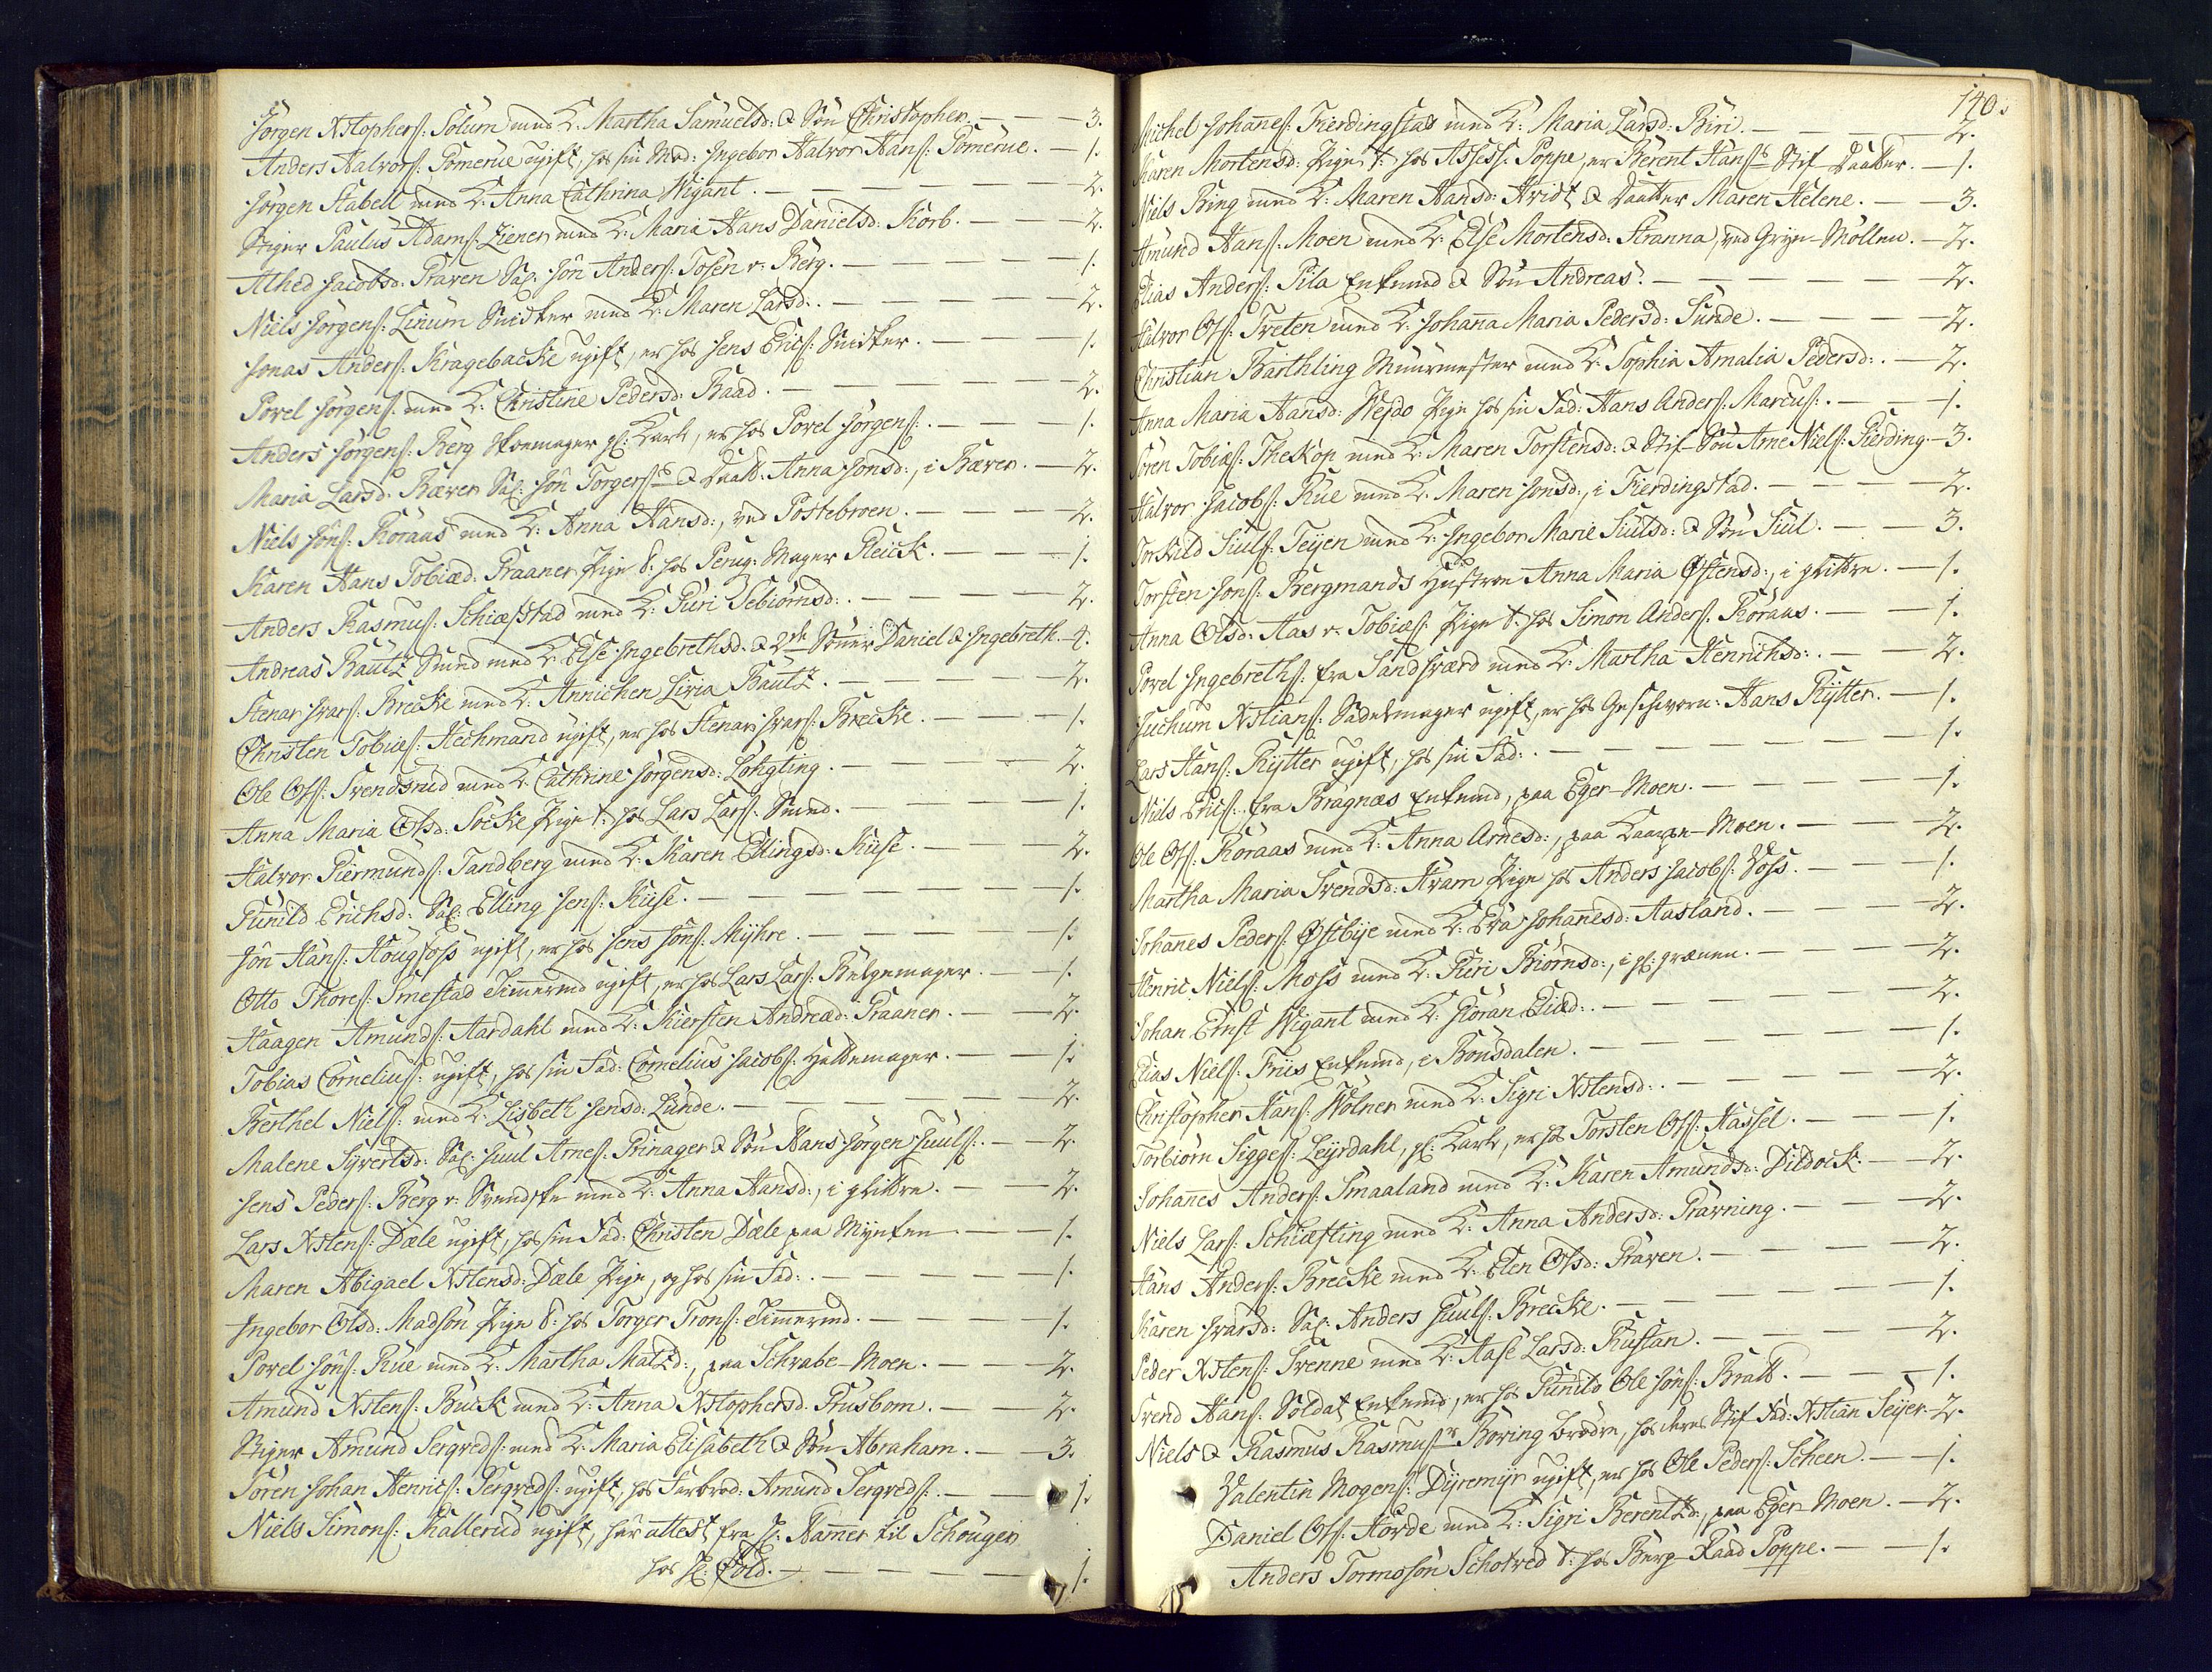 Jörgen Xstophers: Solum med K: Martha Samuelsd: & Sön Christopher. — — 3.
Anders Halvors: Pomerue ugift, hos sin Mod: Ingebor Halvor Hans: Pomerue. — 1.
Jörgen Stabell med K: Anna Cathrina Wigant. — — — 2.
Stiger Paulus Adams: Ziener med K: Maria Hans Danielsd: Korb. — — 2.
Alhed Jacobsd: Praven Sal: Jön Anders: Tosen v: Berg. — — — 1.
Niels Jörgens: Linum Snidker med K: Maren Larsd: . — — — 2.
Jonas Anders: Kragebacke ugift, er hos Jens Erics: Snidker. — — — 1.
Povel Jörgens: med K: Christine Pedersd: Baad. — — — 2.
Anders Jörgens: Berg Skoemager gl: Karl, er hos Povel Jörgens: . — — 1.
Maria Larsd: Bæver Sal: Jön Torgers: & Daatt: Anna Jonsd:, i Bæver. — 2.
Niels Jöns: Koraas med K: Anna Hansd:, ved Postebroen. — — — 2.
Karen Hans Tobiæd: Praaner Pige t: hos Perug: Mager Gleick. — — — 1.
Anders Rasmus: Schiæfstad med K: Guri Sebiörnsd: . — — — 2.
Andreas Bautz Smed med K: Else Ingebrethsd: & 2de Sönner Daniel & Ingebreth. 4.
Stenar Ivars: Brecke med K: Annichen Livia Bautz. — — — 2.
Christen Tobiæs: Hechmand ugift, er hos Stenar Ivars: Brecke. — — — 1.
Ole Ols: Svendsrud med K: Cathrine Jörgensd: Lökgting. — — — 2.
Anna Maria Olsd: Söcke Pige t: hos Lars Lars: Smed. — — — 1.
Halvor Giermunds: Tandberg med K: Karen Ellingsd: Kuse. — — — 2.
Gunild Erichsd: Sal: Elling Jens: Kuse. — — — 1.
Jön Hans: Hougfoss ugift, er hos Jens Jöns: Myhre. — — — 1.
Otto Thores: Smestad Timermd ugift, er hos Lars Lars: Belgemager. — — 1.
Haagen Amunds: Aardahl med K: Kiersten Andreæd: Praaner. — — 2.
Tobias Cornelius: ugift, hos sin Fad: Cornelius Jacobs: Holkemager. — — 1.
Berthel Niels: med K: Lisbeth Jensd: Lunde. — — — 2.
Malene Syvertsd: Sal: Juul Arnes: Prinager & Sön Hans Jörgen Juuls: . — — 2.
Jens Peders: Berg v: Svendske med K: Anna Hansd:, i glittre. — — 2.
Lars Xstens: Dæle ugift, hos sin Fad: Christen Dæle paa Mynten — — 1.
Maren Abigael Xstensd: Dæle Pige, og hos sin Fad: . — — — 1.
Ingebor Olsd: Madsön Pige t: hos Torger Trons: Timermd. — — — 1.
Povel Jöns: Rue med K: Martha Matzd:, paa Schrabe-Moen. — — — 2.
Amund Xstens: Buck med K: Anna Xstophersd: Prusbom. — — — 2.
Stiger Amund Serqveds: med K: Maria Elisabeth & Sön Abraham. — — 3.
Sören Johan Henrics: Serqveds: ugift, hos Farbrod: Amund Serqveds: . — — 1.
Niels Simons: Kallerud ugift, har attest fra H: Hamer til Schouger
hos H: Cold. — — — 1.
140.
Michel Johanes: Fierdingstad med K: Maria Larsd: Biri. — — — 2.
Karen Mortensd: Pige t: hos Assess: Poppe, er Berent Hans: Stif-Daatter. — 1.
Niels Ring med K: Maren Hansd: Hvidt & Daatter Maren Helene. — — 3.
Amund Hans: Moen med K: Else Mortensd: Stranna, ved Gryn-Möllen. — 2.
Elias Anders: Pila Enkemd & Sön Andreas. — — — 2.
Halvor Ols: Treten med K: Johana Maria Pedersd: Sunde. — — — 2.
Christian Barthling Muurmester med K: Sophia Amalia Pedersd: . — 2.
Anna Maria Hansd: Wejdo Pige hos sin Fad: Hans Anders: Marcus: . — — 1.
Sören Tobiæs: Theskop med K: Maren Torstensd: & Stif-Sön Arne Niels: Gierding. — 3.
Halvor Jacobs: Rue med K: Maren Jonsd:, i Fierdingstad. — — — 2.
Torkild Siuls: Teyen med K: Ingebor Marie Siulsd: & Sön Siul. — — 3.
Torsten Jons: Bergmands Hustroe Anna Maria Østensd:, i glittre. — 1.
Anna Olsd: Aas v: Tobiæs: Pige t: hos Simon Anders: Koraas. — — 1.
Povel Ingebreths: fra Sandsværd med K: Martha Henrichsd: . — — 2.
Juchum Xstians: Sadelmager ugift, er hos Geschworn: Hans Rytter. — 1.
Lars Hans: Rytter ugift, hos sin Fad: . — — — 1.
Niels Erics: fra Bragnæs Enkemd, paa Eger-Moen. — — — 1.
Ole Ols: Koraas med K: Anna Arnesd:, paa Kaagen-Moen. — — 2.
Martha Maria Svendsd: Hvam Pige hos Anders Jacobs: Voss. — — 1.
Johanes Peders: Østbye med K: Eva Johanesd: Aasland. — — — 2.
Henric Niels: Moss med K: Guri Biörnsd:, i gl: grænen. — — — 2.
Johan Ernst Wigant med K: Göran Eliæd: . — — — 2.
Elias Niels: Friis Enkemd, i Bonsdalen. — — — 1.
Christopher Hans: Wölner med K: Sigri Xstensd: . — — — 2.
Torbiörn Sigges: Leyrdahl, gl: Karl, er hos Torsten Ols: Hassel. — — 1.
Johanes Anders: Smaaland med K: Karen Amundsd: Dildock. — — 2.
Niels Lars: Schiæfting med K: Anna Andersd: Pravning. — — 2.
Hans Anders: Brecke med K: Elen Olsd: Praven. — — — 2.
Karen Ivarsd: Sal: Anders Juuls: Brecke. — — — 1.
Peder Xstens: Svenne med K: Aase Larsd: Rustan. — — — 2.
Svend Hans: Soldat Enkemd, er hos Gunild Ole Jöns: Bratt. — — 1.
Niels & Rasmus Rasmus: Böring brødre, hos deres Stif-Fad: Xstian Seyer. 2.
Valentin Mogens: Dyremyr ugift, er hos Ole Peders: Scheen. — — 1.
Daniel Ols: Horde med K: Sigri Berentzd:, paa Eger-Moen. — 2.
Anders Tormosön Schotved t: hos Berg-Raad Poppe. — — 1.